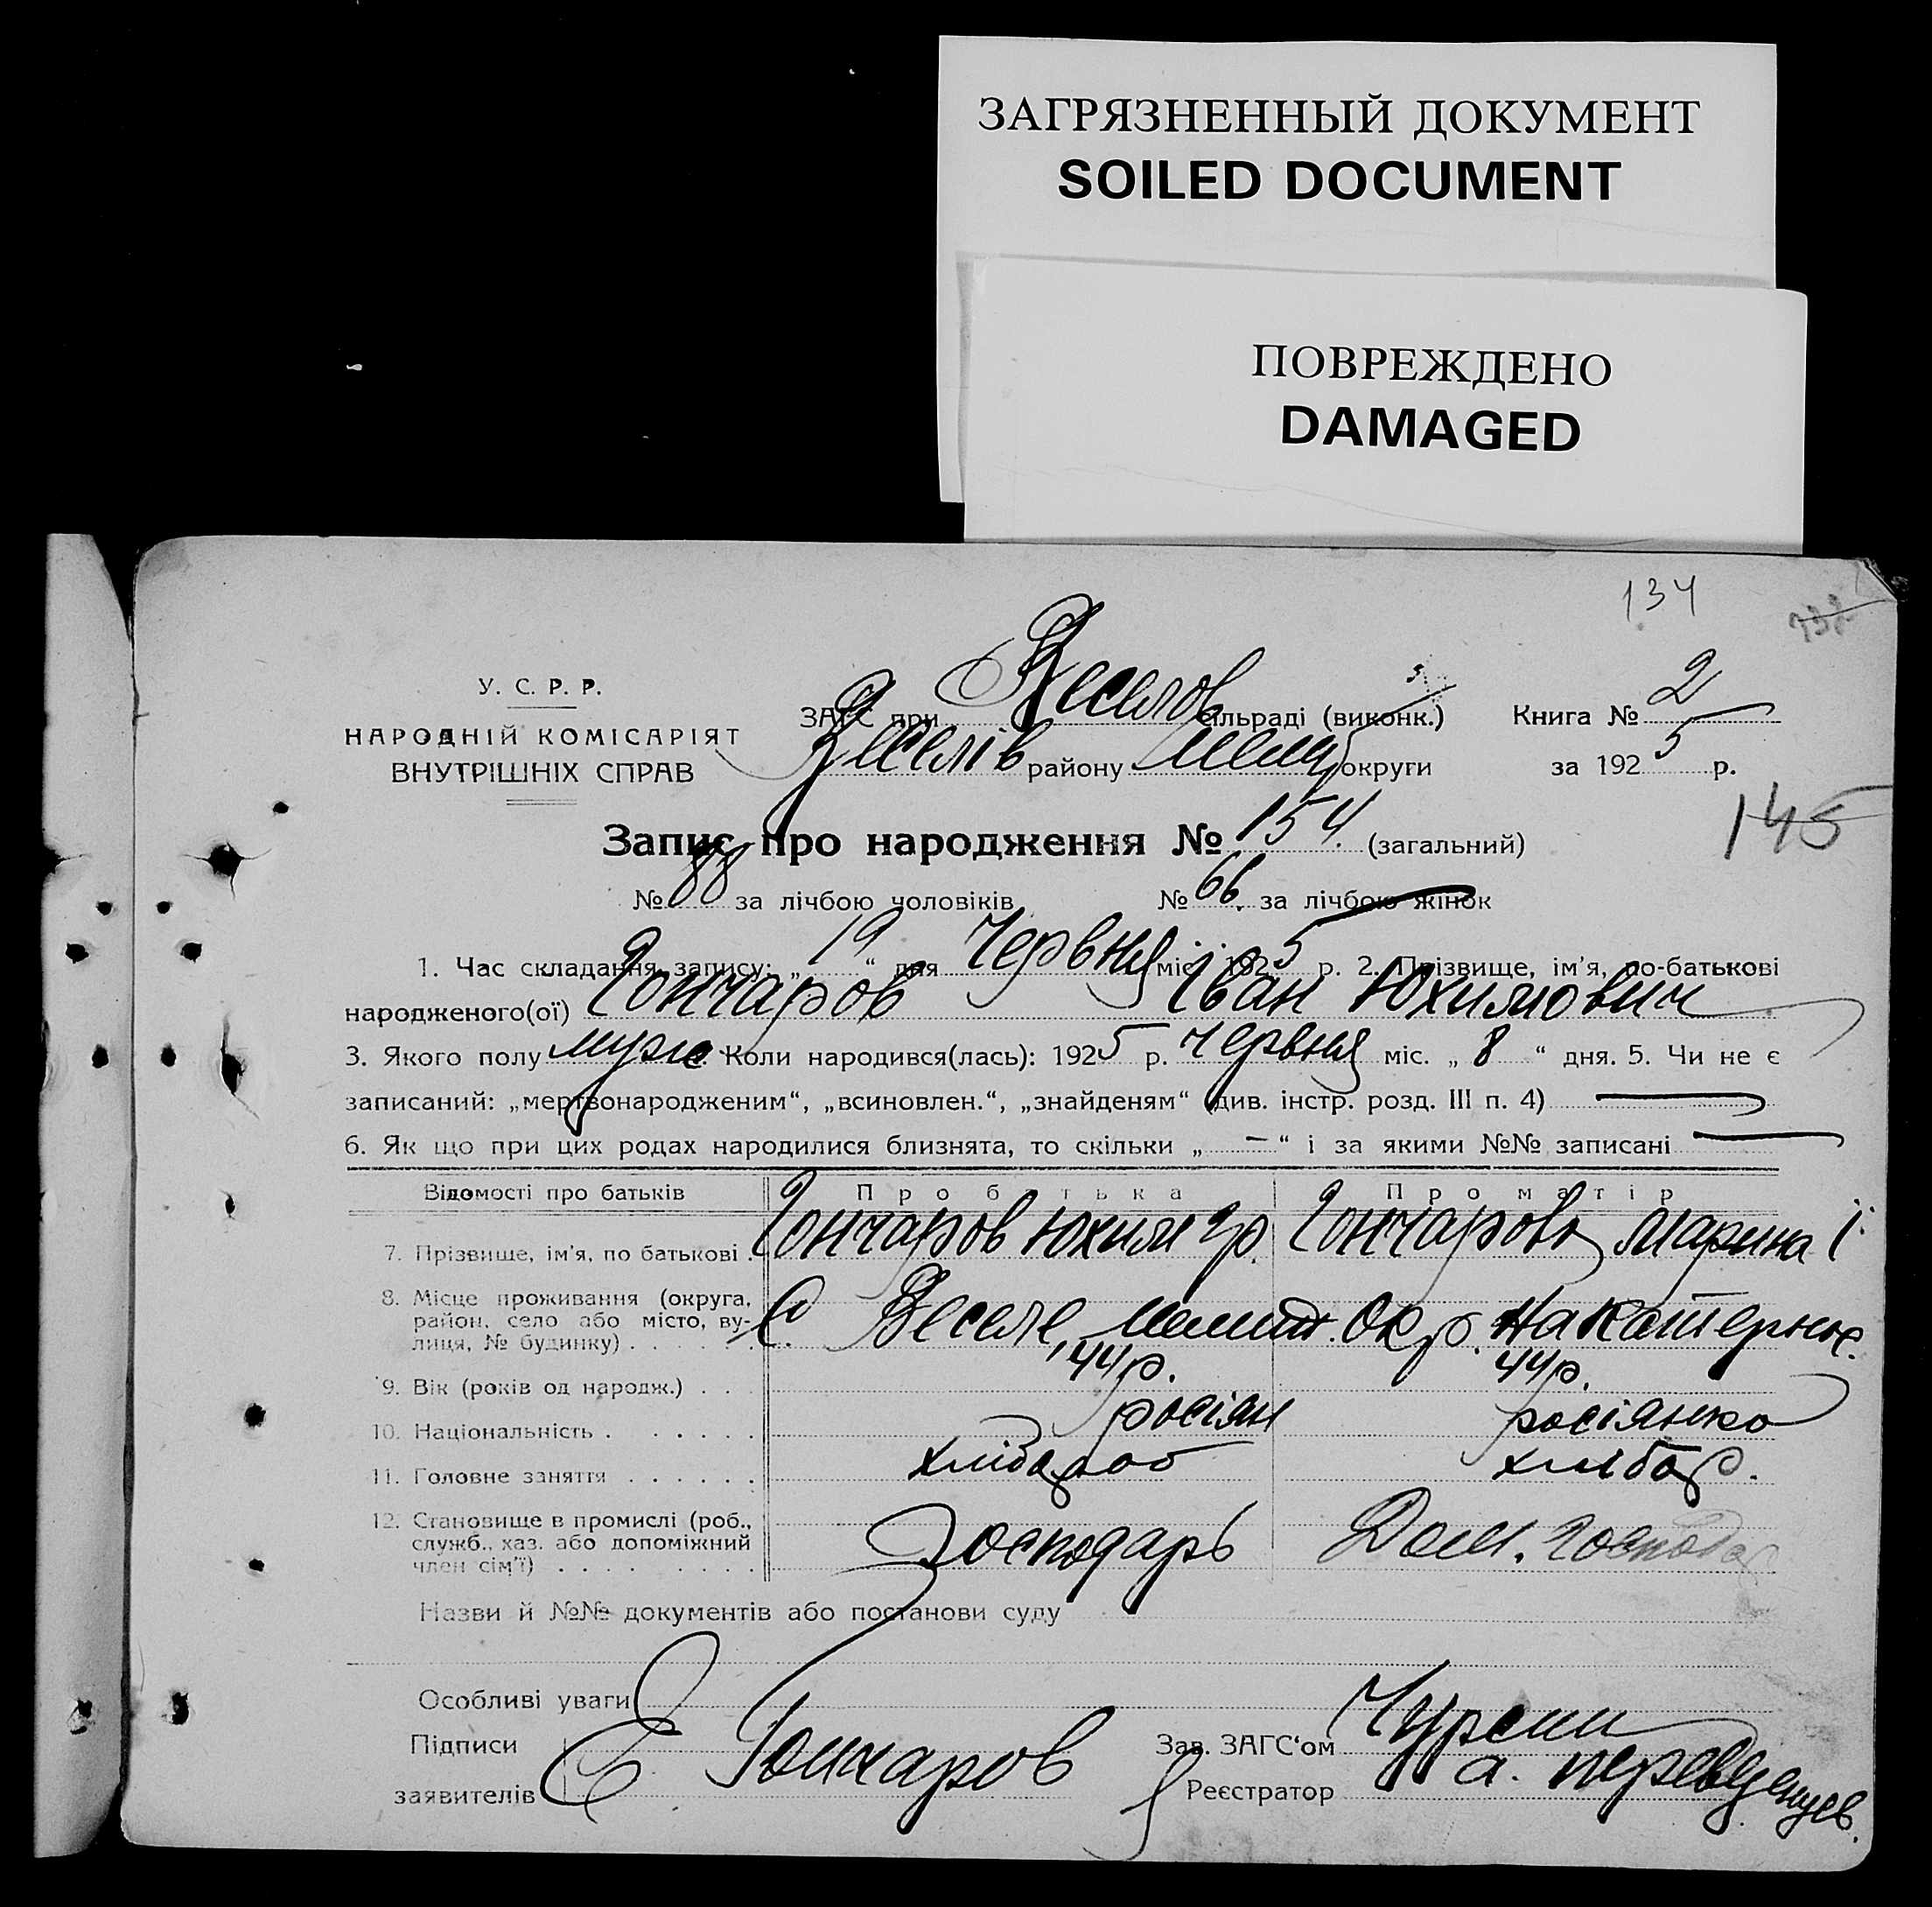 ЗАГРЯЗНЕННЫЙ ДОКУМЕНТ
SOILED DOCUMENT
ПОВРЕЖДЕНО
DAMAGED
134
У. С. Р. Р.
НАРОДНІЙ КОМІСАРІЯТ
ВНУТРІШНІХ СПРАВ
ЗАГС при Веселов сільраді (виконк.) Книга № 2
Веселів району Меліт округи за 1925 р.
145
Запис про народження № 154. (загальний)
№ 88 за лічбою чоловіків № 66. за лічбою жінок
1. Час складання запису: „ 19 “ дня Червня міс. 1925 р. 2. Прізвище, ім'я, по-батькові
народженого(ої) Гончаров Іван Юхимович
3. Якого полу муже. Коли народився(лась): 1925 р. Червня міс. „ 8 “ дня. 5. Чи не є
записаний: „мертвонародженим“, „всиновлен.“, „знайденям“ (див. інстр. розд. III п. 4)
6. Як що при цих родах народилися близнята, то скільки „ — “ і за якими №№ записані —
Відомості про батьків Про батька Про матір
7. Прізвище, ім'я, по батькові . Гончаров Юхим Гр. Гончарова Марина І.
8. Місце проживання (округа,
район, село або місто, ву-
лиця, № будинку) . . . . . . С. Веселе, Мелит. Окр.
9. Вік (років од народж.) . . . 44 р. 44 р.
10. Національність . . . . . . росіян росіянка
11. Головне заняття . . . . . . хлібороб хлібор.
12. Становище в промислі (роб.,
служб., хаз. або допоміжний
член сім'ї) . . . . . . . . . Господарь Дом. Господар
Назви й №№ документів або постанови суду
Особливі уваги
Підписи
заявителів Е Гончаров
Зав. ЗАГС'ом
Реєстратор А. Переведенцев.